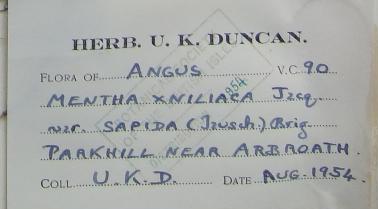 HERB. U. K. DUNCAN.
FLORA OF ANGUS V.C. 90
MENTHA XNILIACA Jacq
var. SAPIDA (Tausch.) Briq
PARKHILL NEAR ARBROATH.
COLL. U.K.D. DATE AUG. 1954.